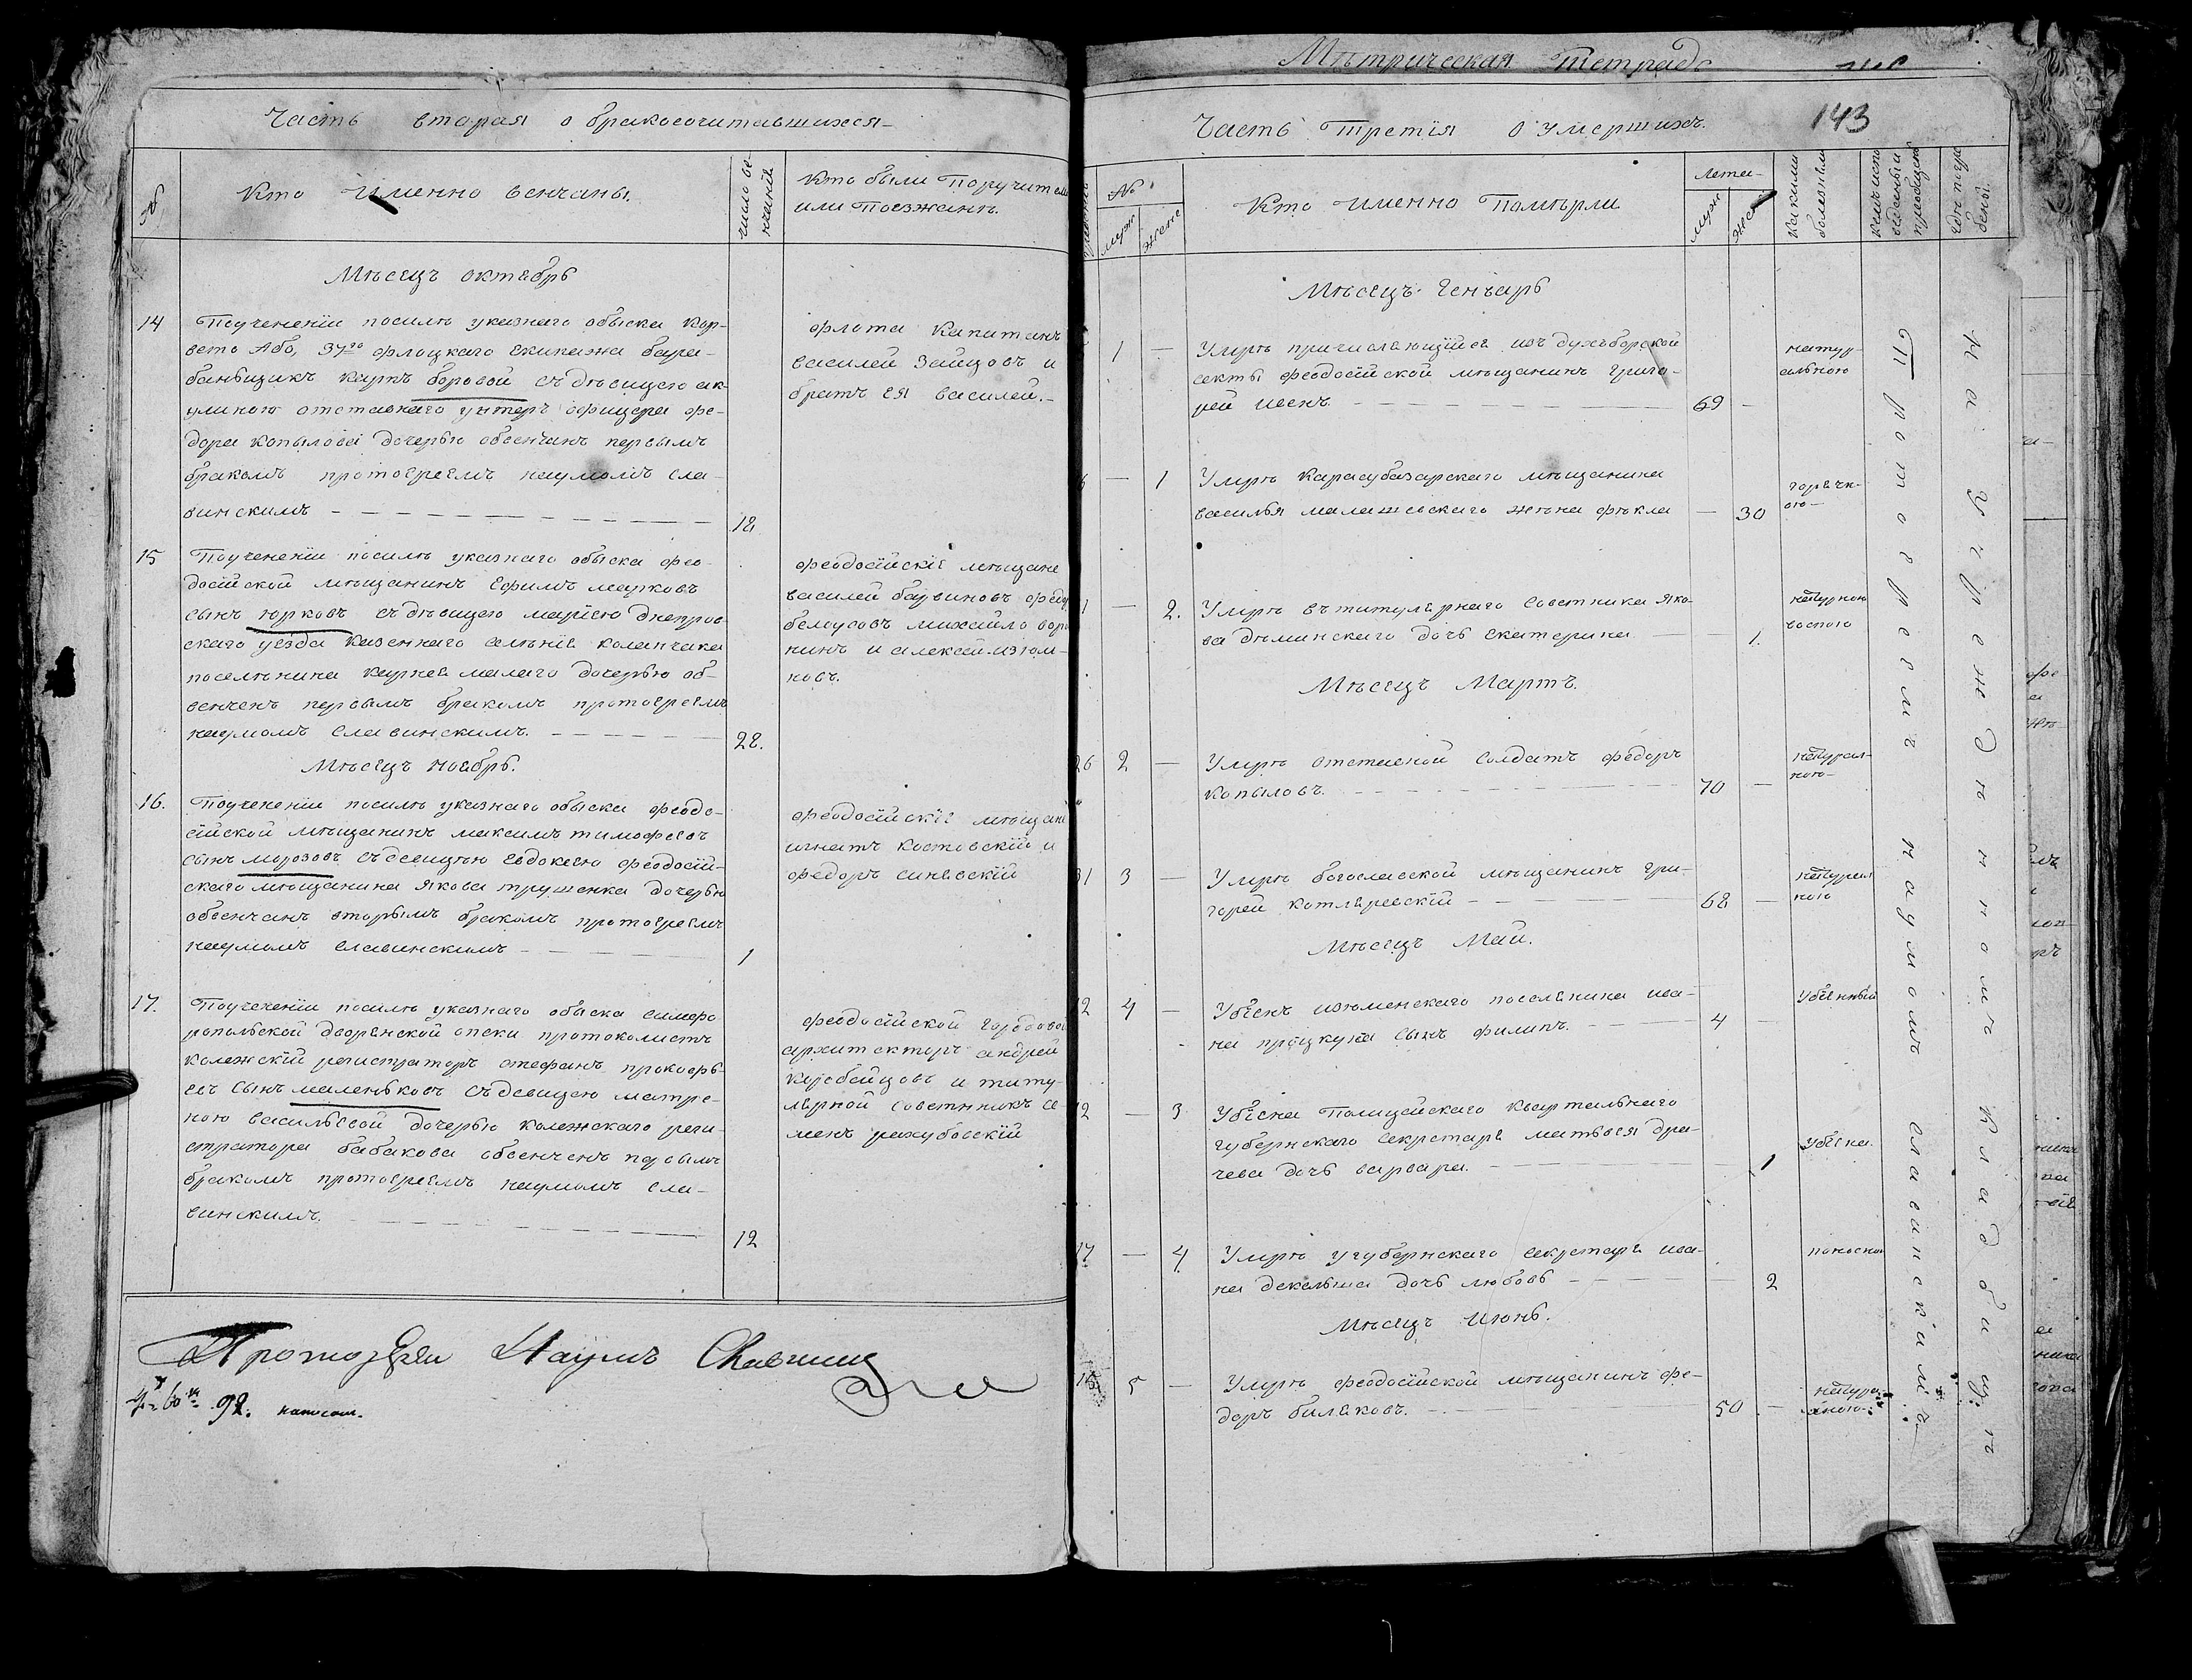 Часть вторая о бракосочитавшихся
№
Кто Именно венчаны.
число ве-
нчанiе
Кто были Поручители
или Поезжанъ.
Мѣсецъ октобрь
14
Поучененiи посилѣ указнаго обыска Кор-
вета Або, 37го флоцкаго Екипажа бара-
банщикъ Карпъ боровой съ дѣвицею ак-
улиною отставнаго унтеръ офицера фе-
дора копылова дочерью обвенчанъ первымъ
бракомъ протоереемъ наумомъ сла-
винскимъ
18
флота Капитанъ
василей Зайцовъ и
братъ Ея василей.
15
Поучененiи посилѣ указнаго обыска фео-
досiйской мѣщанинъ Ефимъ марковъ
сынъ юрковъ съ дѣвицею мариею днепров-
скаго уезда казеннаго селѣнiя каланчака
поселѣнина карнея малаго дочерью об-
венченъ первымъ бракомъ протоереемъ
наумомъ славинскимъ.
28.
феодосiйскiе мѣщане
василей
белоусовъ михайло
нинъ и алексей
новъ.
Мѣсецъ ноябрь.
16.
Поучененiи посилѣ указнаго обыска феодо-
сiйской мѣщанинъ максимъ тимофеевъ
сынъ морозовъ съ девицею евдокеею феодосiй-
скаго мѣщанина якова трушенка дочерью
обвенчанъ вторымъ бракомъ протоереемъ
наумомъ славинскимъ
1
феодосiйскiе мѣщане
игнатъ костовскiй и
федоръ синявскiй
17.
Поучененiи посилѣ указнаго обыска симфе
ропольской дворянской опеки протоколистъ
колежскiй регистраторъ стефанъ прокофь-
евъ сынъ маленьковъ съ девицею матре-
ною васильевой дочерью колежскаго реги-
стратора бабакова обвенченъ первымъ
бракомъ протоереемъ наумомъ сла-
винскимъ.
12
феодосiйской городовой
архитекторъ андрей
и титу-
лярной советникъ се-
менъ
Протоiерей Наумъ Славинский
92.
Мѣтрическая тетрадь
143
Часть Третiя О умершихъ.
№
муж
жене
Кто Именно Помѣрли
Лета
муж
жен
Какими
болезньми
Мѣсецъ Генъварь
1 —
Умрѣ причисляющiйся изъ духаборской
секты феодосiйской мѣщанинъ григо-
рей ивенъ.
69 —
натур-
альною
6 — 1
Умрѣ карасубазарскаго мѣщанина
василья малашевскаго жѣна фѣкла
— 30
горячк-
ою
— 2.
Умрѣ титулярнаго советника яко-
ва дѣминскаго дочь екатерина
— 1.
натурною
воспою
Мѣсецъ Мартъ.
26 2 —
Умрѣ отставной солдатъ федоръ
копыловъ.
70 —
натурал-
ною
31 3 —
Умрѣ богославской мѣщанинъ гри-
горей котляревскiй
68 —
натурал
ною
Мѣсецъ Май.
12 4 —
Убiенъ изюменскаго поселянина ива-
на сынъ филипъ.
4 —
Убiенный
12 — 3
Убiена Полицейскаго квартальнаго
губернскаго секретаря матвея дра-
чева дочь варвара.
1
Убiена.
17 — 4
Умрѣ у губернскаго секретаря ива-
на декельша дочь любовь
2
поносною
Мѣсецъ июнь.
5 —
Умрѣ феодосiйской мѣщанинъ фе-
доръ биляковъ.
50 —
Протоереемъ наумомъ славинскимъ
На Учрежденномъ кладбищъ